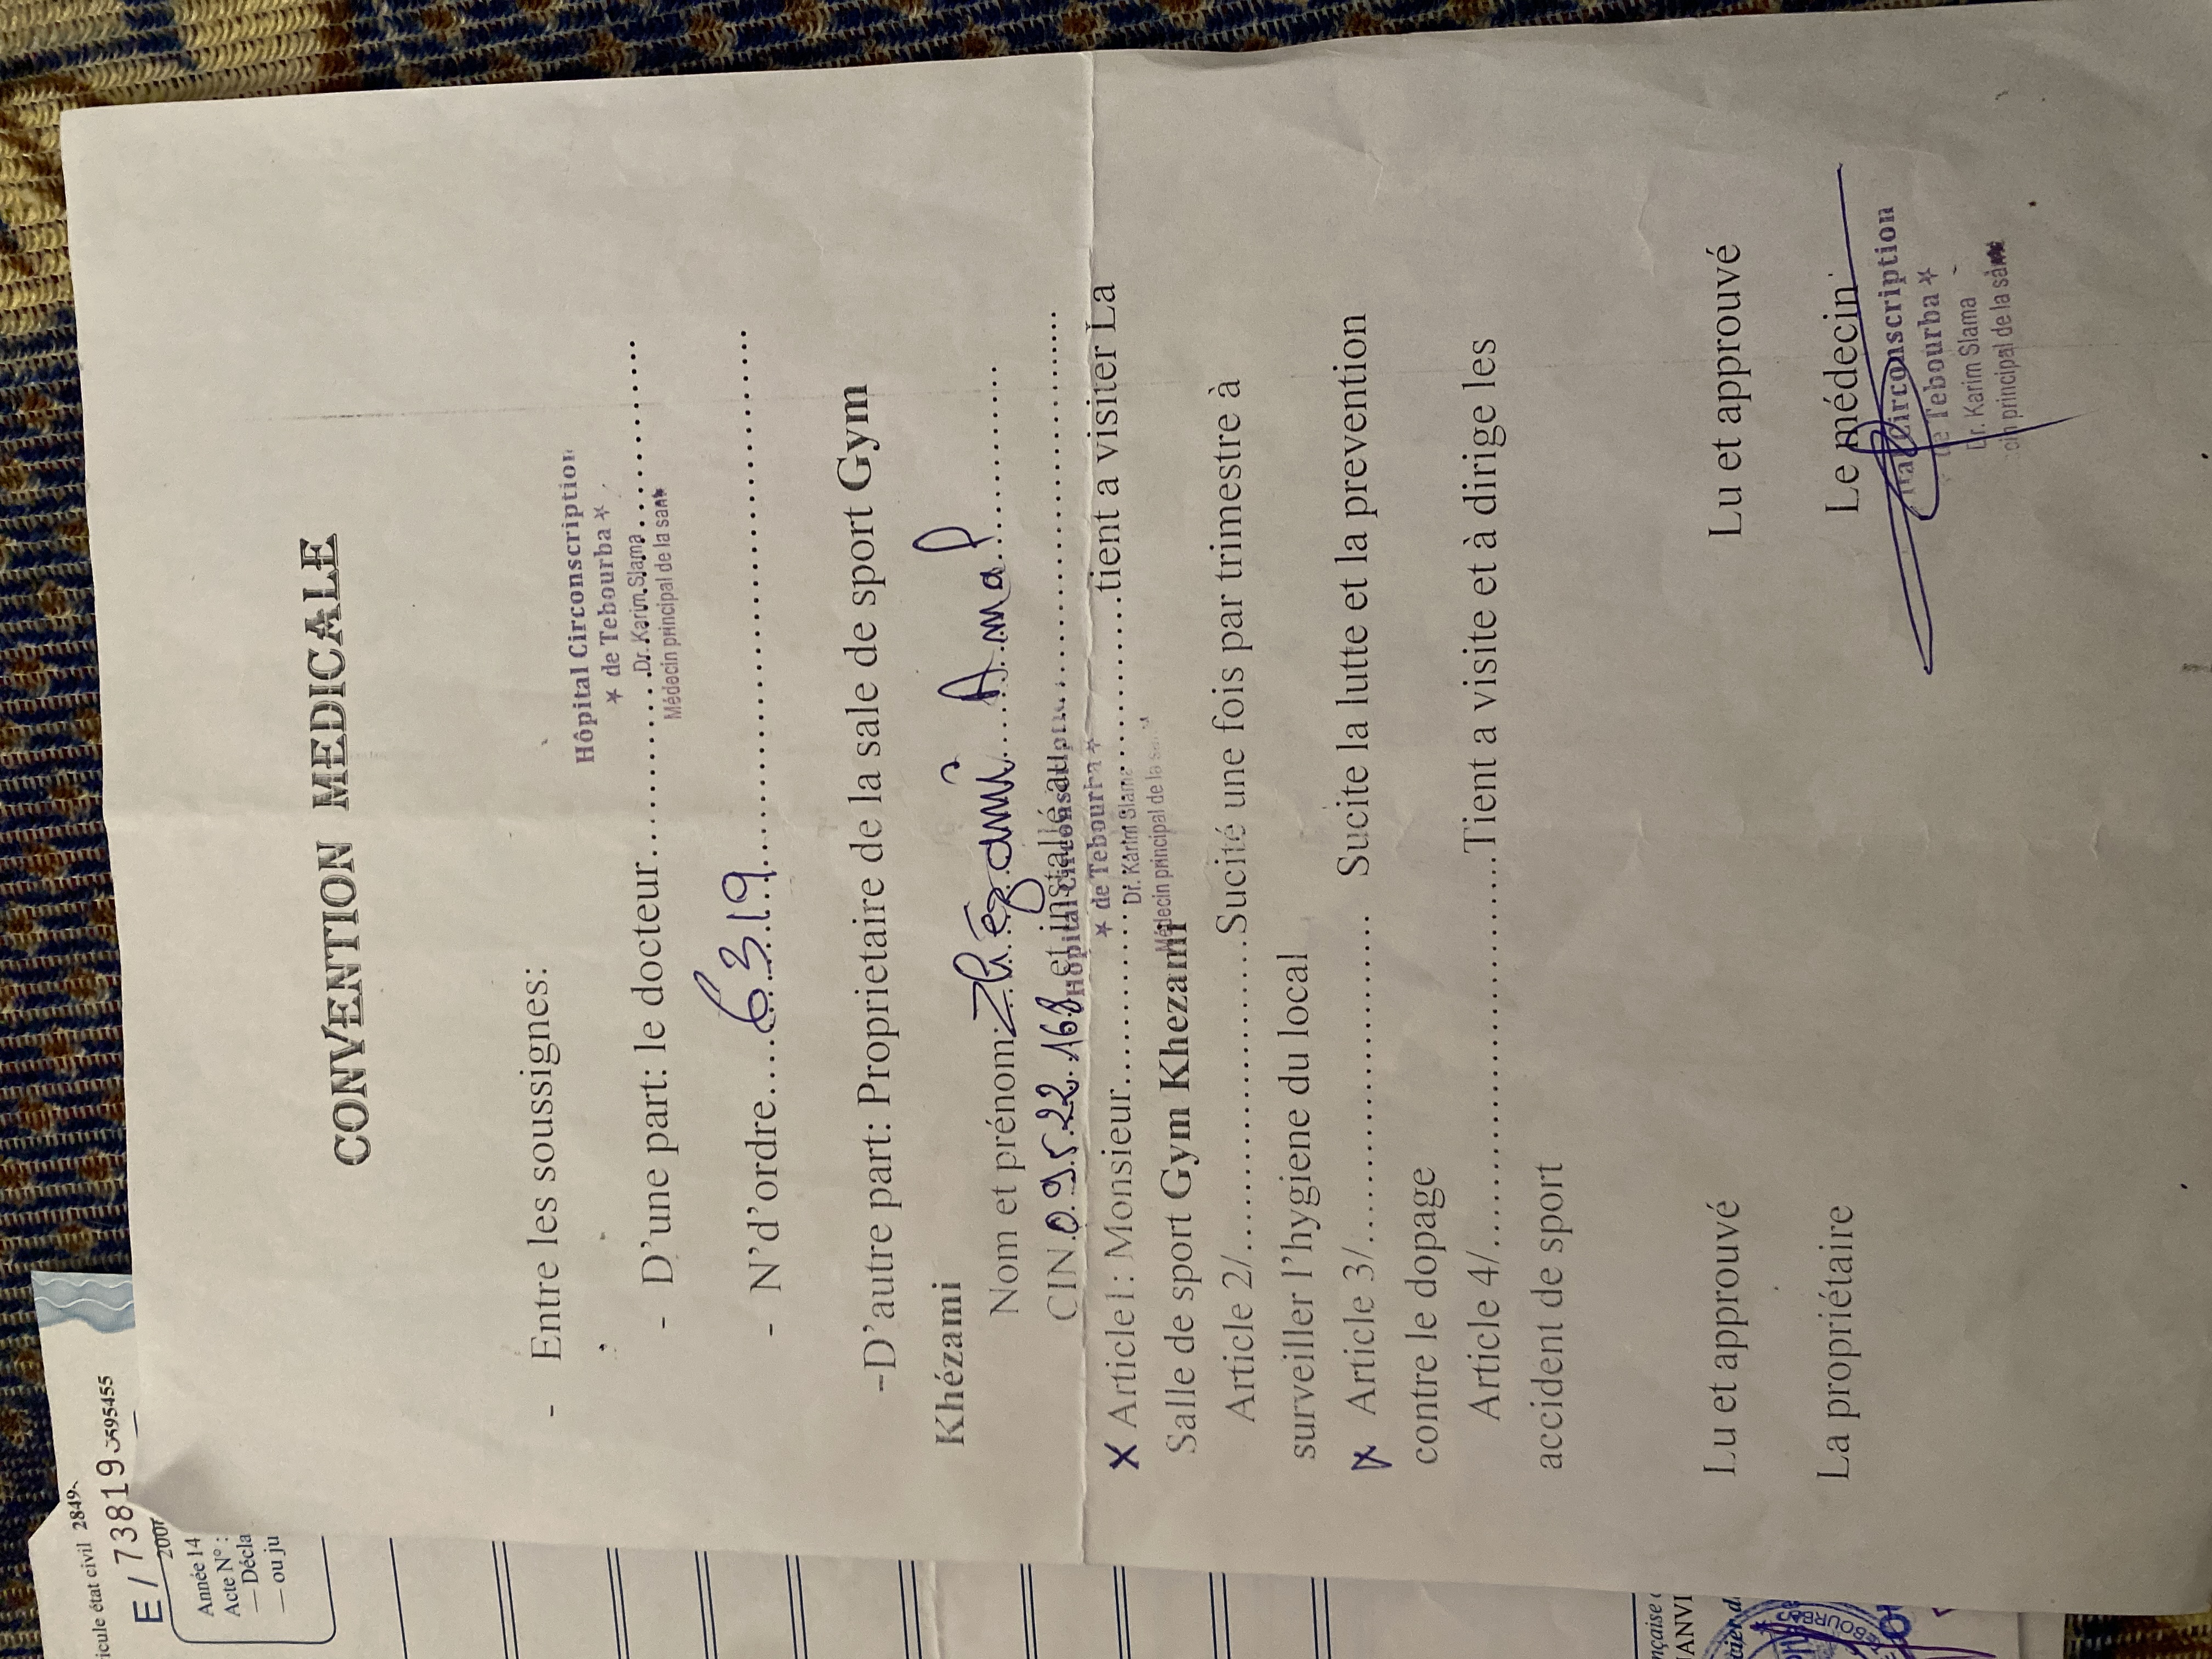 CONVENTION MEDICALE
- Entre les soussignes:
Hôpital Circonscription
* de Tebourba *
- D'une part: le docteur.......Dr. Karim Slama.......
Médecin principal de la santé
- N'd'ordre.....6319.......
-D'autre part: Proprietaire de la sale de sport Gym
Khézami
Nom et prénom: Khézami Amal.......
CIN.09.522.168 et installé au.......
Hôpital Circonscription
* de Tebourba *
Dr. Karim Slama
Médecin principal de la santé
x Article1: Monsieur..............tient a visiter La
Salle de sport Gym Khezami
Article 2/..............Sucité une fois par trimestre à
surveiller l'hygiene du local
Article 3/.............. Sucite la lutte et la prevention
contre le dopage
Article 4/..............Tient a visite et à dirige les
accident de sport
Lu et approuvé Lu et approuvé
La propriétaire Le médecin
Circonscription
de Tebourba *
Dr. Karim Slama
principal de la santé
état civil 2849
E / 73819 595455
Année 14
Acte N° :
— Décla
— ou ju